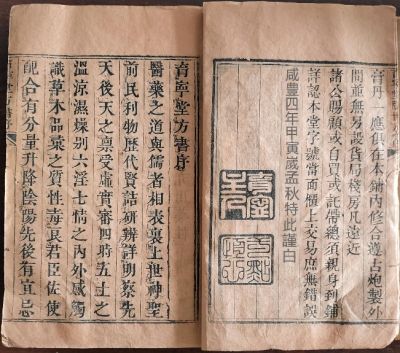 膏丹一應俱在本鋪內修合遵古炮製外
間並無另設貨局棧房凡遠近
諸公賜顧或自買或託帶總須親身到鋪
詳認本堂字號當面櫃上交易庶無錯誤
咸豐四年甲寅歲孟秋特此謹白
育寧堂方書序
醫藥之道與儒者相表裏上世神聖
前民利物歷代賢喆研辨詳明察先
天後天之稟受虛實審四時五土之
溫涼濕燥別六淫七情之內外感觸
識草木品彙之質性毒良君臣佐使
配合有分量升降陰陽先後有宜忌